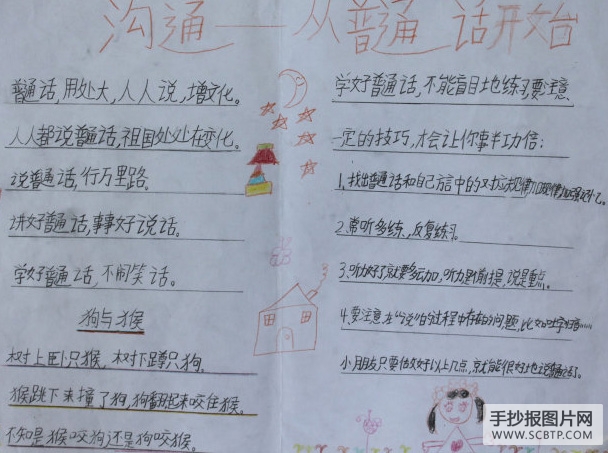 沟通——从普通话开始
普通话,用处大,人人说,增文化。
人人都说普通话,祖国处处在变化。
说普通话,行万里路。
讲好普通话,事事好说话。
学好普通话,不闹笑话。
狗与猴
树上卧只猴,树下蹲只狗。
猴跳下来撞了狗,狗翻起来咬住猴。
不知是猴咬狗还是狗咬猴。
学好普通话,不能盲目地练习,要注意
一定的技巧,才会让你事半功倍:
1.找出普通话和自己方言中的对应规律
2.常听多练,反复练习。
3.听力好了就要多运动,听力是前提,说是重点。
4.要注意在“说”的过程中存在的问题,比如
小朋友只要做好以上几点,就能很好地说普通话了。
手抄报图片网
WWW.SCBTP.COM